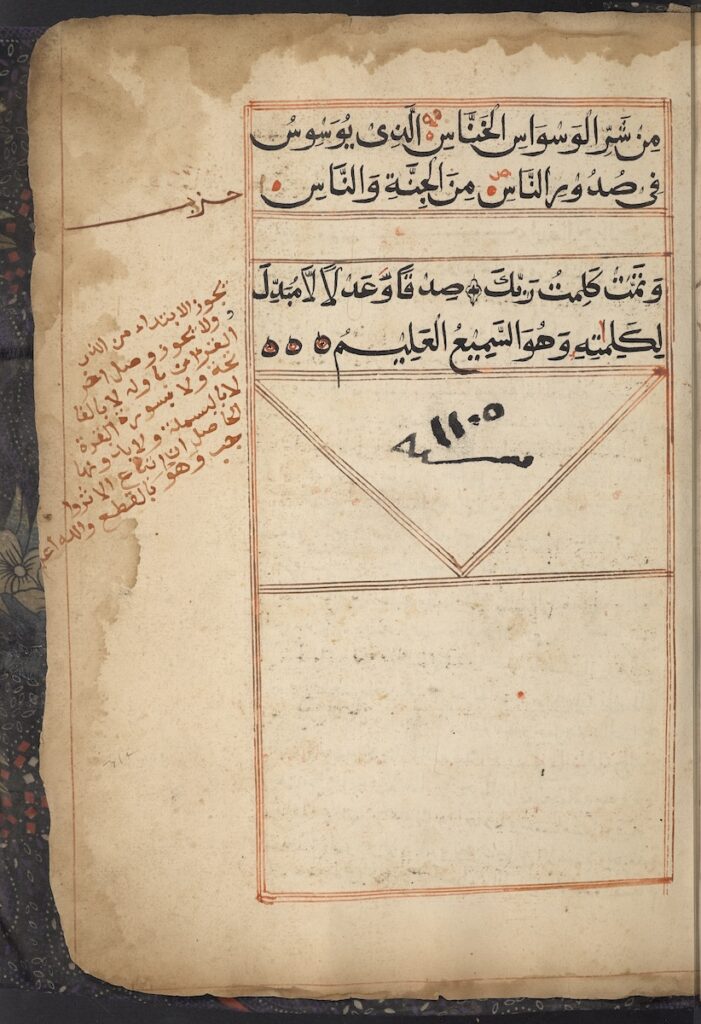 مِنْ شَرِّ الوَسْوَاسِ الخَنَّاسِ الَّذِى يُوَسْوِسُ
فِى صُدُورِ النَّاسِ مِنَ الجِنَّةِ وَالنَّاسِ
حزب
وَتَمَّتْ كَلِمتُ رَبِّكَ صِدْقًا وَّعَدْلًا لَّا مُبَدِّلَ
لِكَلِمٰتِهِ وَهُوَ السَّمِيعُ العَلِيمُ
١١٠٥
سنه
يجوز الابتداء من الناس
ولا يجوز وصل اخر
بالفا
تحة ولا بسورة البقرة
لا بالبسملة ولا بدونها
الحاصل ان
جب وهو بالقطع والله اعلم